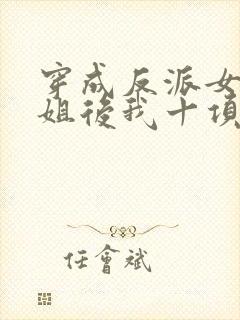 穿成反派女
姐後我十項
任會斌